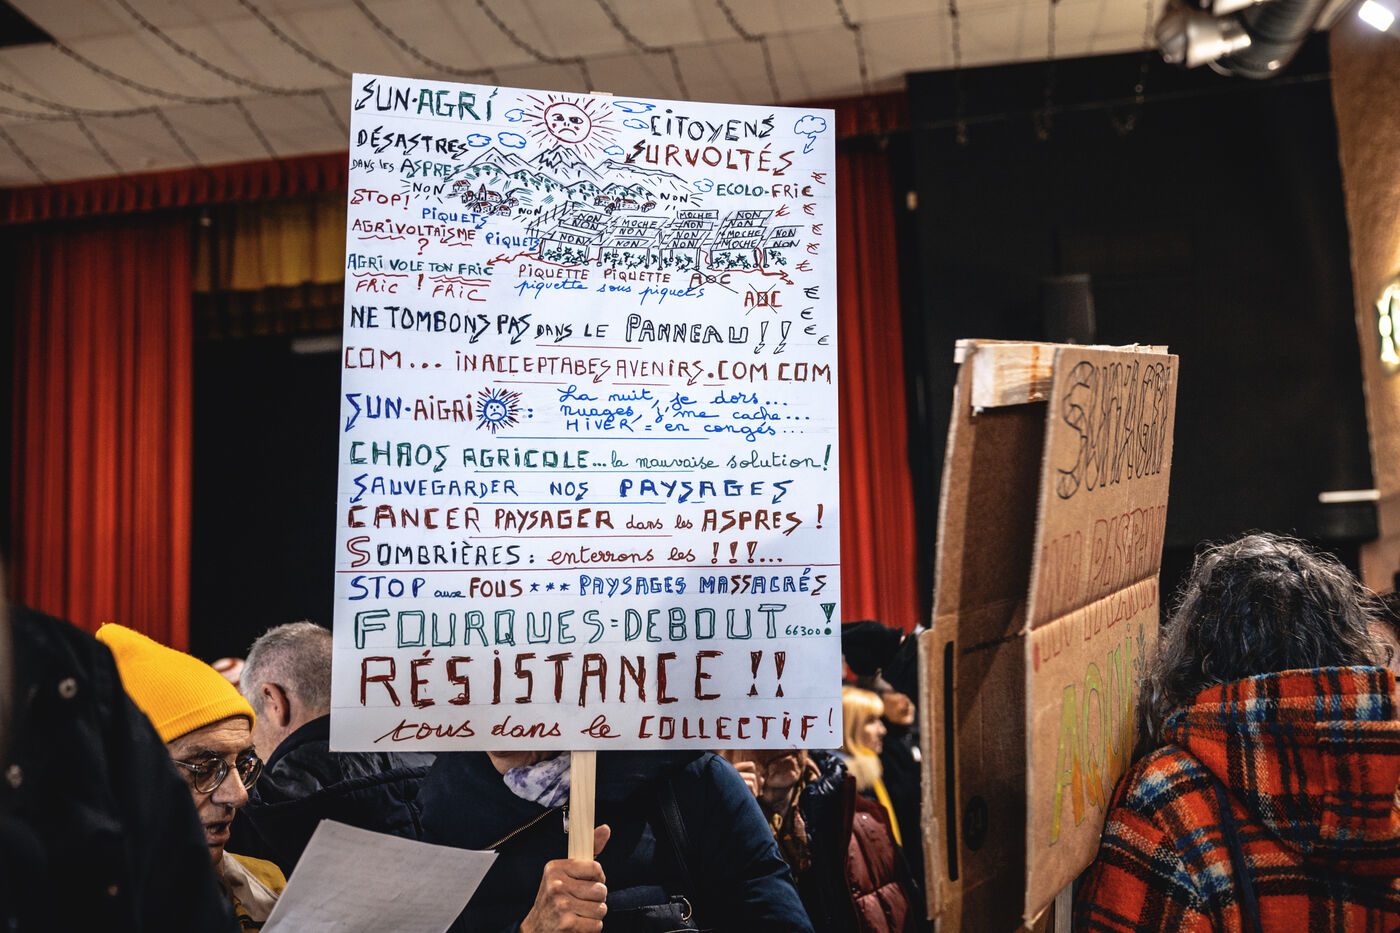 SUN-AGRI
CITOYENS
SURVOLTÉS
DÉSASTRES
DANS les ASPRES
NON
ECOLO-FRIC
STOP!
NON
NON
PIQUETS
AGRIVOLTAÏSME
?
PIQUETS
NON NON MOCHE NON
NON MOCHE NON NON
NON NON MOCHE NON
NON NON MOCHE NON
AGRI VOLE TON FRIC
FRIC ! FRIC
PIQUETTE PIQUETTE AOC
piquette sous piquets
AOC
€ € € € € € € € €
NE TOMBONS PAS DANS LE PANNEAU!!
COM... INACCEPTABES AVENIRS.COM COM
SUN-AIGRI : La nuit, je dors...
nuages, j'me cache...
HIVER = en congés...
CHAOS AGRICOLE...la mauvaise solution!
SAUVEGARDER NOS PAYSAGES
CANCER PAYSAGER dans les ASPRES!
SOMBRIÈRES: enterrons les !!!...
STOP aux FOUS *** PAYSAGES MASSACRÉS
FOURQUES=DEBOUT 66300!
RÉSISTANCE!!
tous dans le COLLECTIF!
SUN'AGRI